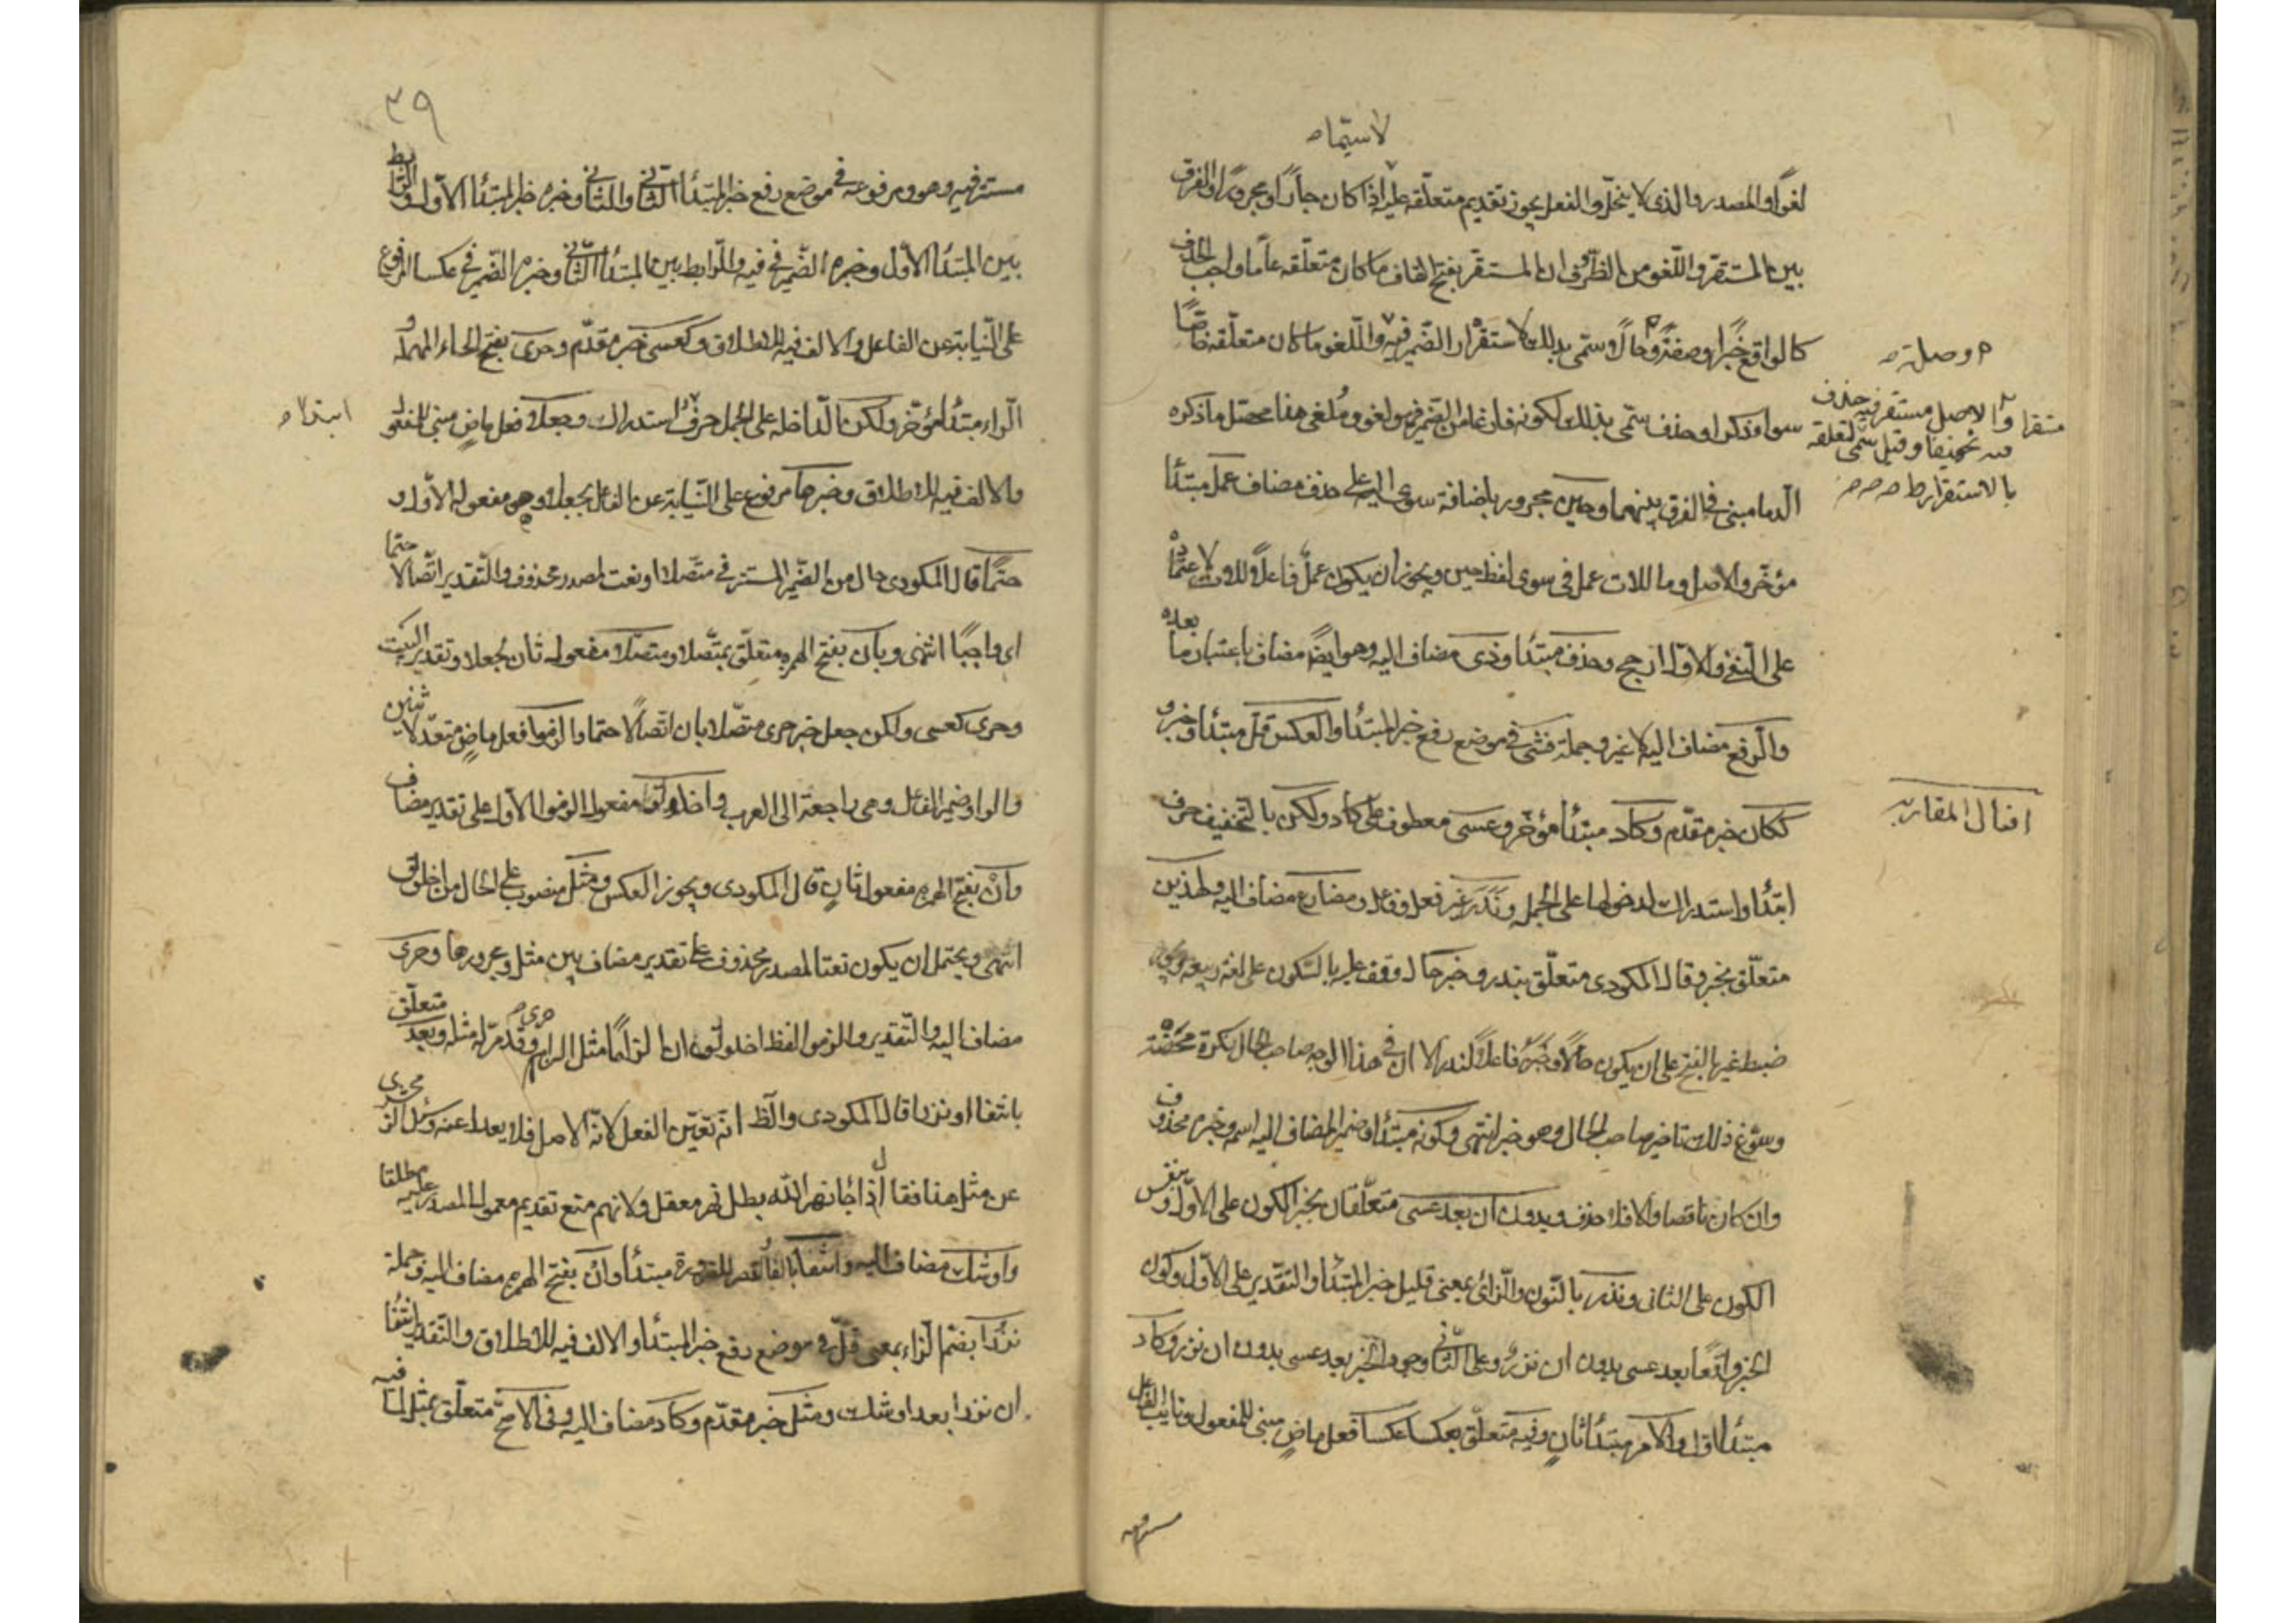 لاسيما
لغوا والمصدر والذي لا ينحل والفعل يجوز تقديم متعلقه عليه اذا كان جارا ومجرورا والفرق
بين المستقر واللغو من الظروف ان المستقر بفتح القاف ما كان متعلقه عاما واجب الحذف
كالواقع خبرا وصفة وحالا وسمى بذلك لاستقرار الضمير فيه واللغو ما كان متعلقه خاصا
سواء ذكر او حذف سمى بذلك لكونه فارغا من الضمير فهو لغو وملغى هذا محصل ما ذكره
الدماميني في الفرق بينهما وحين مجرور باضافة سوى اليه على حذف مضاف عمل مبتدأ
مؤخر والاصل وما للات عمل في سوى لفظ حين ويجوز ان يكون عمل فاعلا للات لاعتماده
على النفي والاول ارجح وحذف مبتدا وذى مضاف اليه وهو ايضا مضاف باعتبار ما بعده
والرفع مضاف اليه لا غير وجملة فشى في موضع رفع خبر المبتدأ والعكس قل مبتدأ وخبر و
ككان خبر مقدم وكاد مبتدأ مؤخر وعسى معطوف على كاد ولكن بالتخفيف حرف
ابتدا واستدراك لدخولها على الجمل وندر غير فعل وفاعل ومضارع مضاف اليه ولهذين
متعلق بخبر وقال المكودى متعلق بندر وخبر حال وقف عليه بالسكون على لغة ربيعة
ضبط غير بالفتح على ان يكون حالا وخبر فاعلا لندر الا ان في هذا الوجه صاحب الحال نكرة محضة
وسوغ ذلك تاخير صاحب الحال وهو خبر انتهى وكونه مبتدأ وضمير المضاف اليه اسمه وخبره محذوف
وان كان ناقصا والا فلا حذف وبدون ان بعد عسى متعلقان بخبر الكون على الاول وبنفس
الكون على الثاني ونزر بالنون والزاي بمعنى قليل خبر المبتدأ والتقدير على الاول وكون
الخبر واقعا بعد عسى بدون ان نزر وعلى الثاني وجود الخبر بعد عسى بدون ان نزر وكاد
مبتدأ اول والامر مبتدأ ثان وفيه متعلق بعكسا عكسا فعل ماض مبني للمفعول ونايب الفاعل
مستتر
م وصلة
والاصل مستقر فيه حذف
تخفيفا وقيل سمى لتعلقه
بالاستقرار
افعال المقاربه
٣٩
مستتر فيه وهو ومرفوعه في موضع رفع خبر المبتدأ الثاني والثاني وخبره خبر المبتدأ الاول والرابط
بين المبتدأ الاول وخبره الضمير في فيه والرابط بين المبتدأ الثاني وخبره الضمير في عكسا المرفوع
على النيابة عن الفاعل والالف فيه للاطلاق وكعسى خبر مقدم وحرى بفتح الحاء المهملة و
الراء مبتدأ مؤخر ولكن الداخلة على الجمل حرف استدراك وجعلا فعل ماض مبني للمفعول
والالف فيه للاطلاق وخبرها مرفوع على النيابة عن الفاعل بجعل وهو مفعوله الاول و
حتما قال المكودى حال من الضمير المستتر في متصلا او نعت لمصدر محذوف والتقدير اتصالا حتما
اى واجبا انتهى وبان بفتح الهمزة متعلق بمتصلا ومتصلا مفعول ثان لجعلا وتقدير البيت
وحرى كعسى ولكن جعل خبر حرى متصلا بان اتصالا حتما والزموا فعل ماض متعد لاثنين
والواو ضمير الفاعل وهى راجعة الى العرب واخلولق مفعول الزموا الاول على تقدير مضاف
وان بفتح الهمزة مفعول ثان قال المكودى ويجوز العكس ومثل منصوب على الحال من اخلولق
انتهى ويحتمل ان يكون نعتا لمصدر محذوف على تقدير مضاف بين مثل ومجرورها وحرى
مضاف اليه والتقدير والزموا لفظ اخلولق ان الزاما مثل الزام حرى وقد مر له مثله وبعد متعلق
بانتفا او نزرا قال المكودى والظ انه تعين الفعل لانه الاصل فلا يعدل عنه
عن مثل هذا فقال اذا جا نهر الله بطل نهر معقل ولانهم منع تقديم معمول المصدر عليه مطلقا
واوشك مضاف اليه وانتفا بالقصر للضرورة مبتدأ وان بفتح الهمزة مضاف اليه وجملة
نزرا بضم الزاء بمعنى قل في موضع رفع خبر المبتدأ والالف فيه للاطلاق والتقدير انتفا
ان نزرا بعد اوشك ومثل خبر مقدم وكاد مضاف اليه وفي الاصح متعلق بمثل لما فيه
ابتدا